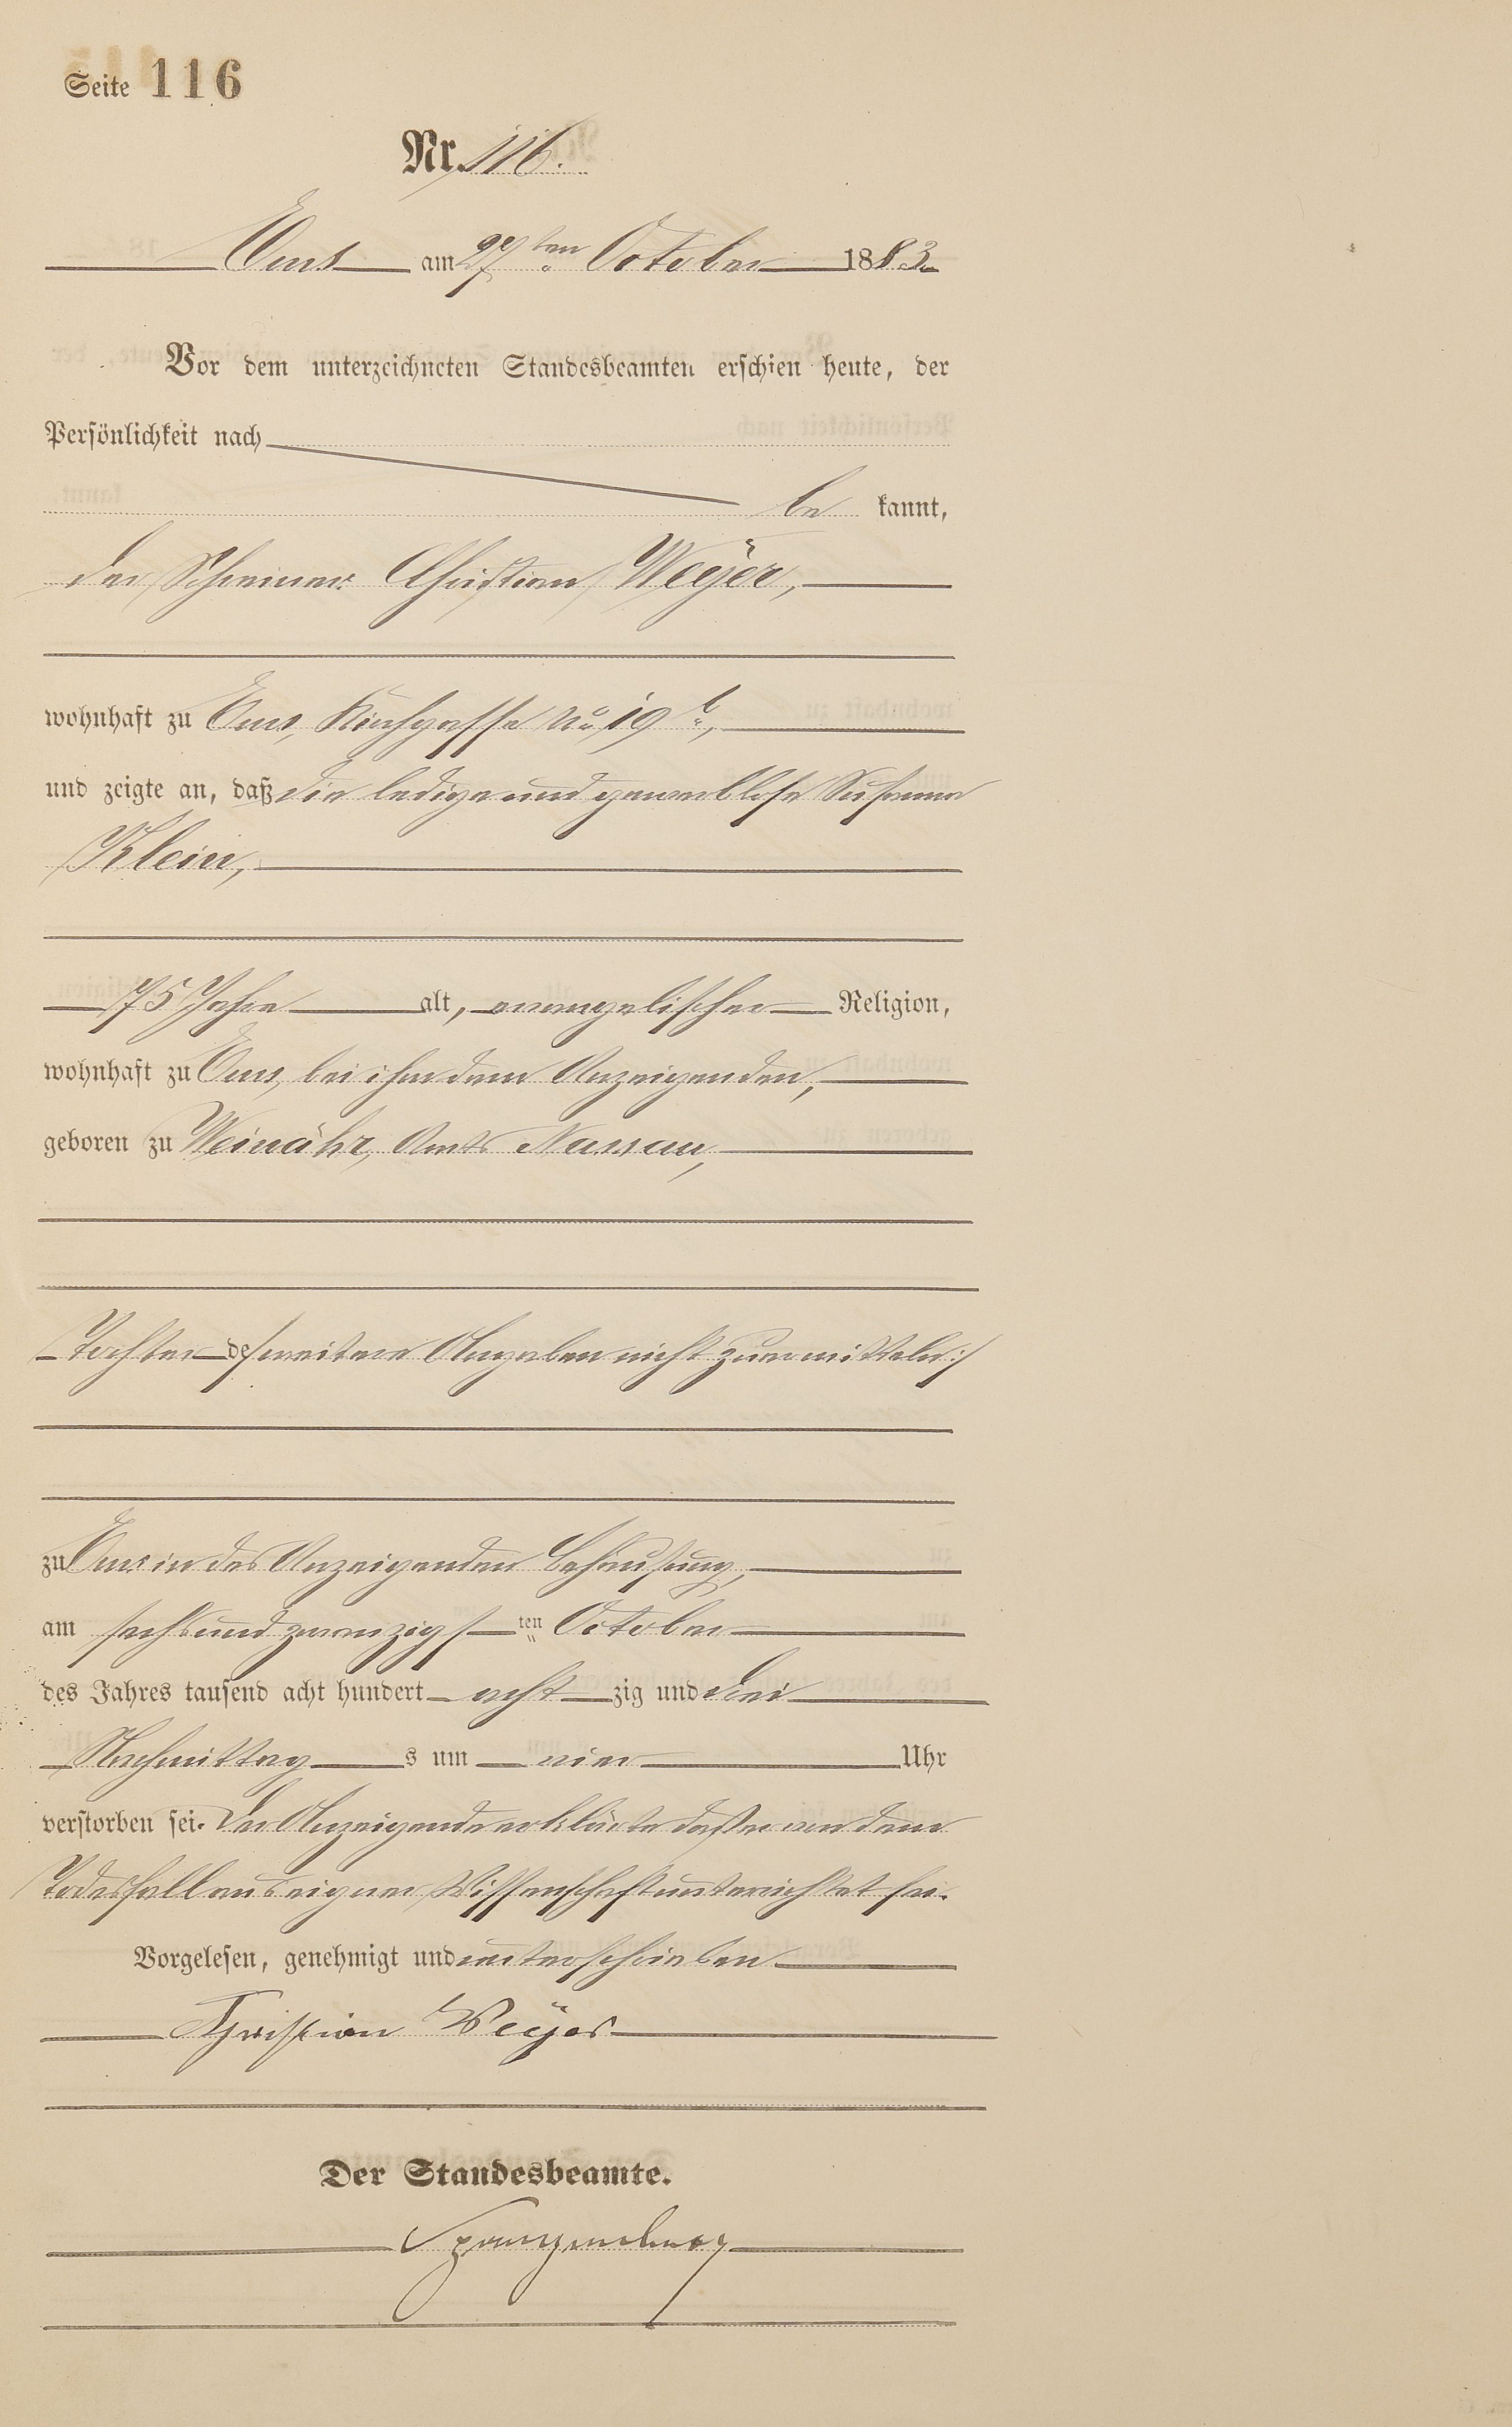 Seite 116
Nr. 116.
Ems am 27ten October 1883.
Vor dem unterzeichneten Standesbeamten erschien heute, der
Persönlichkeit nach
be kannt,
der Schreiner Christian Weyer,
wohnhaft zu Ems, Kirchgasse No 19 b,
und zeigte an, daß die ledige und gewerblose Susanna
Klein,
75 Jahre alt, evangelischer Religion,
wohnhaft zu Ems, bei ihm dem Anzeigenden,
geboren zu Weinähr, Amts Nassau,
Tochter de/: weitere Angaben nicht zu ermitteln :/
zu Ems in des Anzeigenden Behausung,
am sechsundzwanzigsten October
des Jahres tausend acht hundert acht zig und drei
Nachmittag s um vier Uhr
verstorben sei. Der Anzeigende erklärte daß er von dem
Todesfall aus eigner Wissenschaft unterrichtet sei.
Vorgelesen, genehmigt und unterschrieben
Christian Weyer
Der Standesbeamte.
Spangenberg